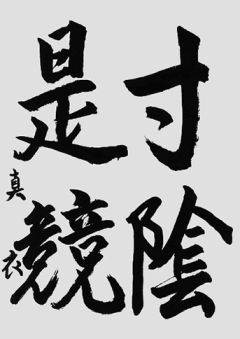 寸陰
是競
真衣